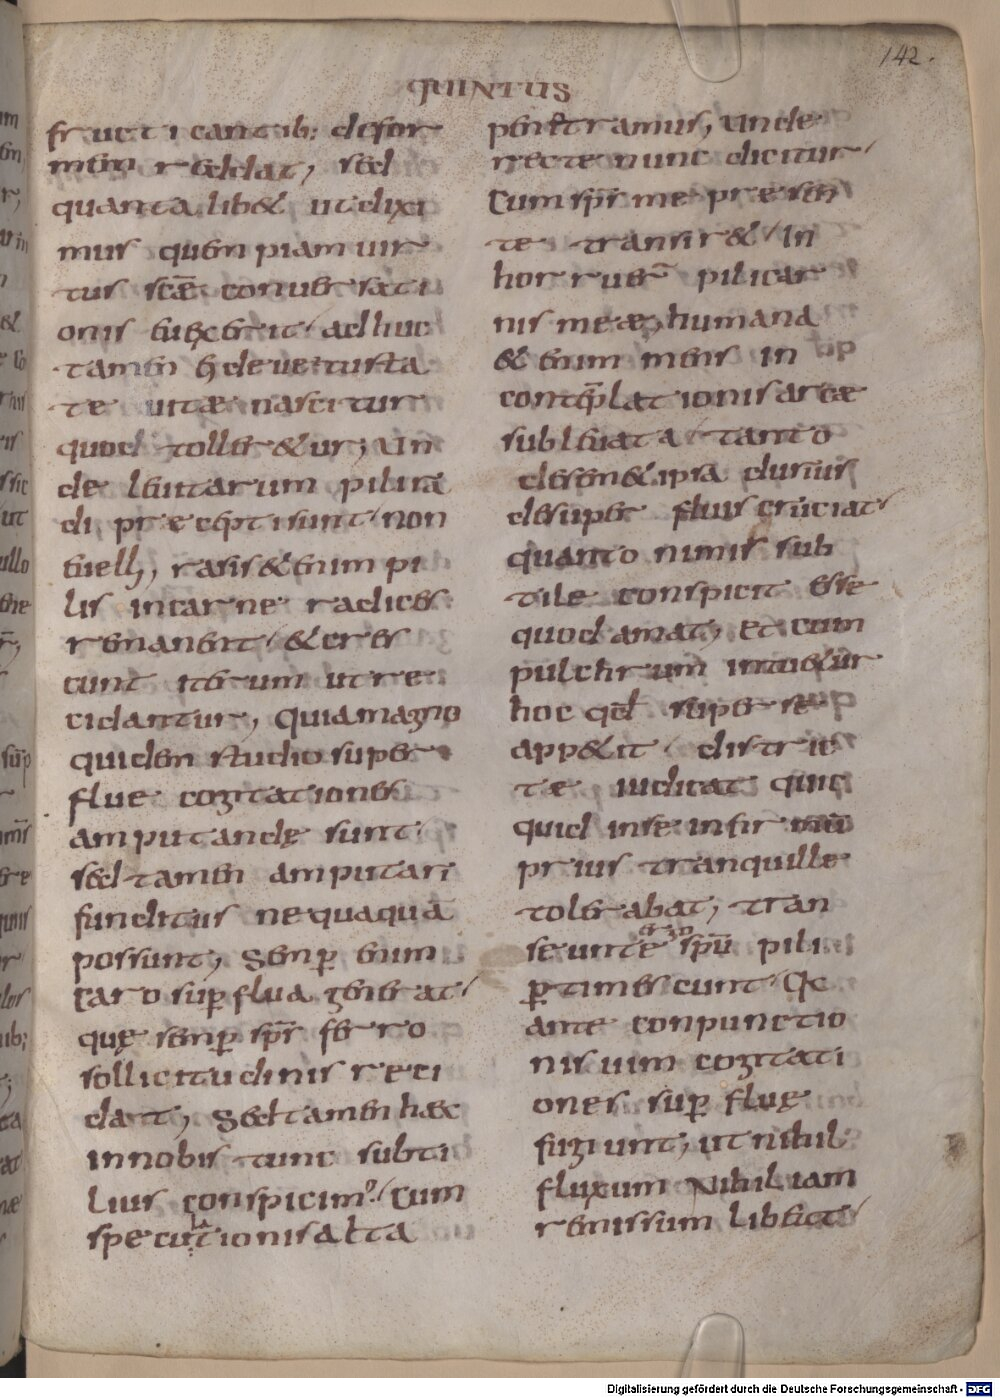 142.
QUINTUS
fructicantib; defor
mem reddat, sed
quanta lib& ut dixi
mus quempiam uir
tus scæ conuersati
onis euexerit adhuc
tamen ei de uetusta
te uitæ nascitur
quod toller&ur; Un
de leuitarum pili rā
di præcepti sunt non
euelli, rasis &enim pi
lis in carne radices
remanent &cres
cunt iterum ut re
cidantur, quia magno
quidem studio super
flue cogitationes
amputandę sunt
sed tamen amputari
funditus nequaquā
possunt, Semp̄ enim
Caro sup̄flua generat
quę semp̄ sp̄s ferro
sollicitudinis reci
dat, Sed tamen hæc
in nobis tunc subti
lius conspicim? Cum
specutionis alta
la
penetramus, unde
recte nunc dicitur
Cum sp̄s me præsen
te transir& In
horruer̄ pili car
nis meæ, humana
& enim mens in
contēplationis arcæ
subleuata tanto
desem&ipsa durius
desuper fluis cruciat
quanto nimis sub
tile conspicit esse
quod amat, et cum
pulchrum intu&ur
hoc qd̄ super se
app&it distric
te iudicat quic
quid in se infirmū
prius tranquille
tolerabat, tran
ergo
seunte sp̄u pili
p̄timescunt Qc
ante conpunctio
nis uim cogitati
ones sup̄ fluę
fugiunt, ut nihil
fluxum Nihil iam
remissum libeat
Digitalisierung gefördert durch die Deutsche Forschungsgemeinschaft - DFG